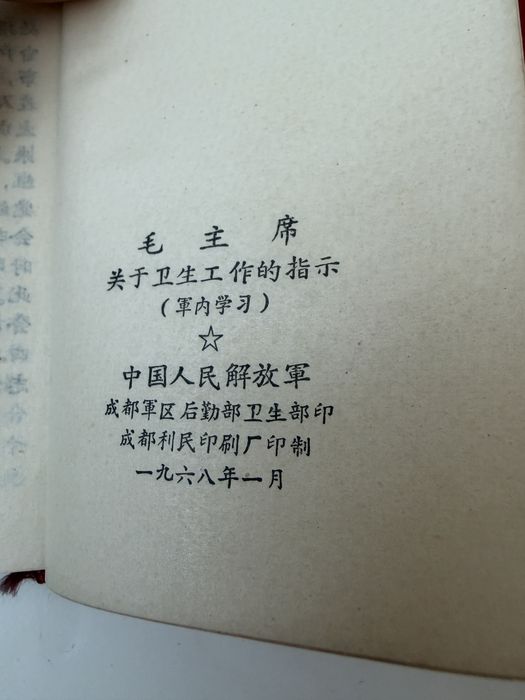 毛主席
关于卫生工作的指示
(軍内学习)
☆
中国人民解放軍
成都軍区后勤部卫生部印
成都利民印刷厂印制
一九六八年一月